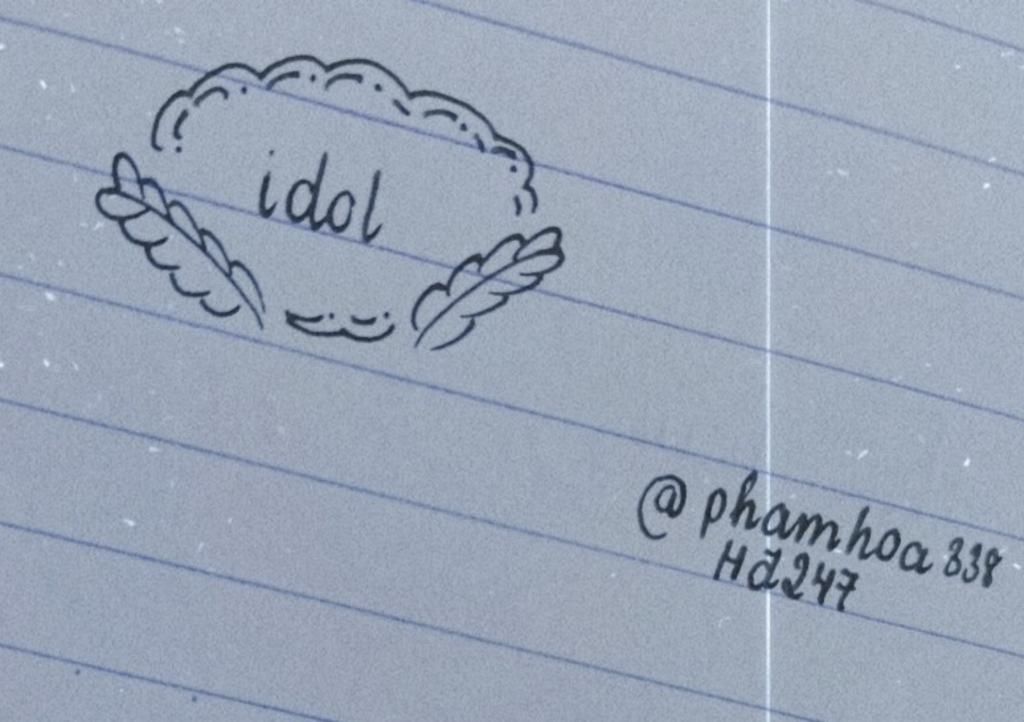 idol
@phamhoa338
Hd247